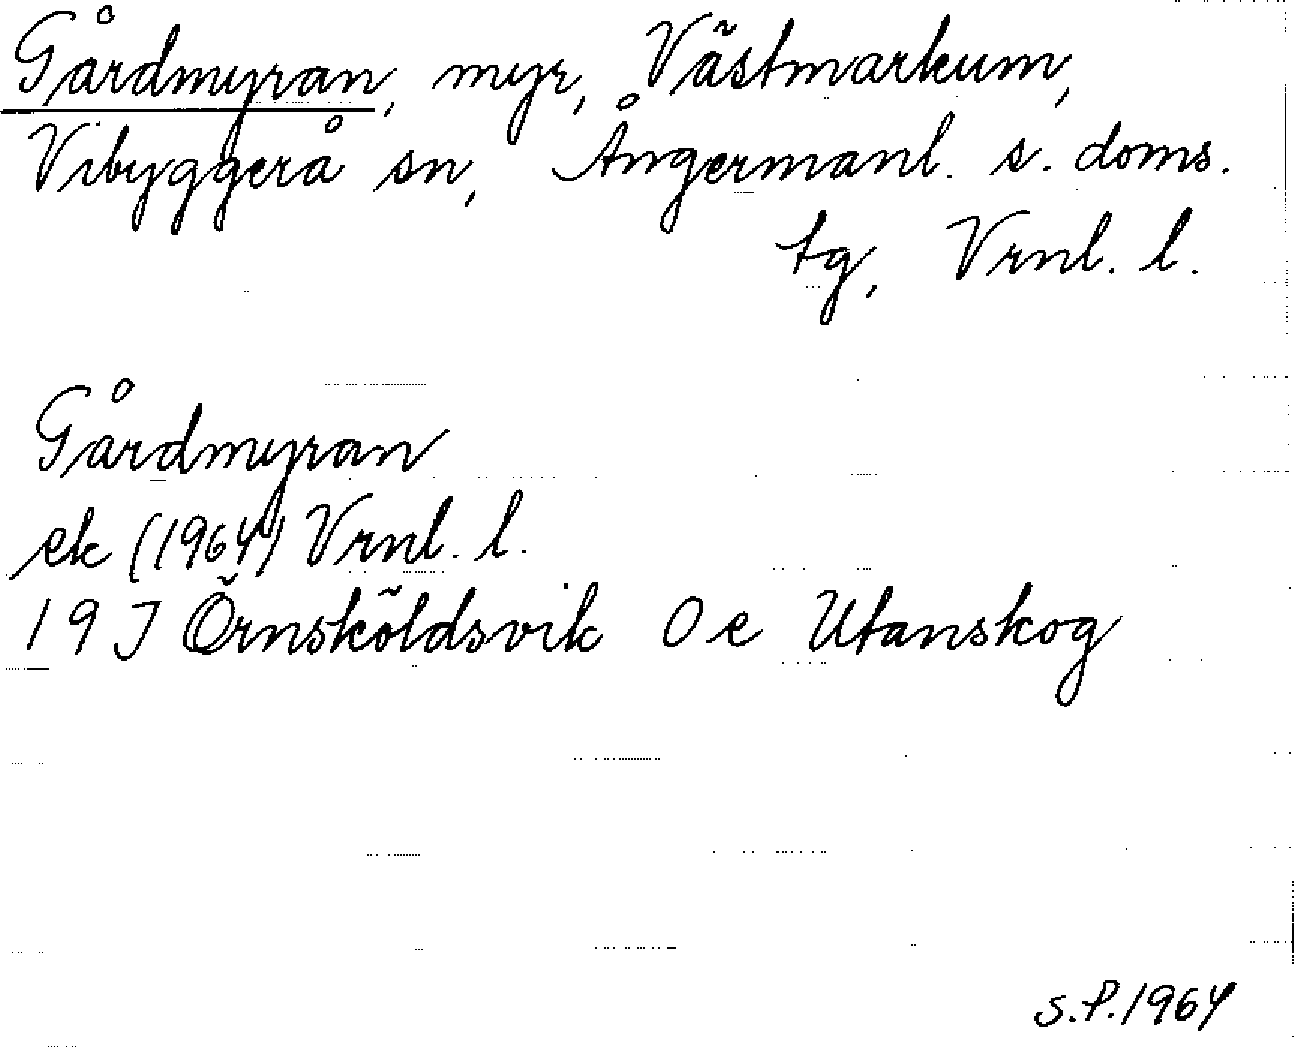 Gårdmyran, myr, Västmarkum,
Vibyggerå sn, Ångermanl. s. doms.
tg, Vrnl. l.
Gårdmyran
ek (1964) Vrnl. l.
19 J Örnsköldsvik 0 e Utanskog
S.P. 1964